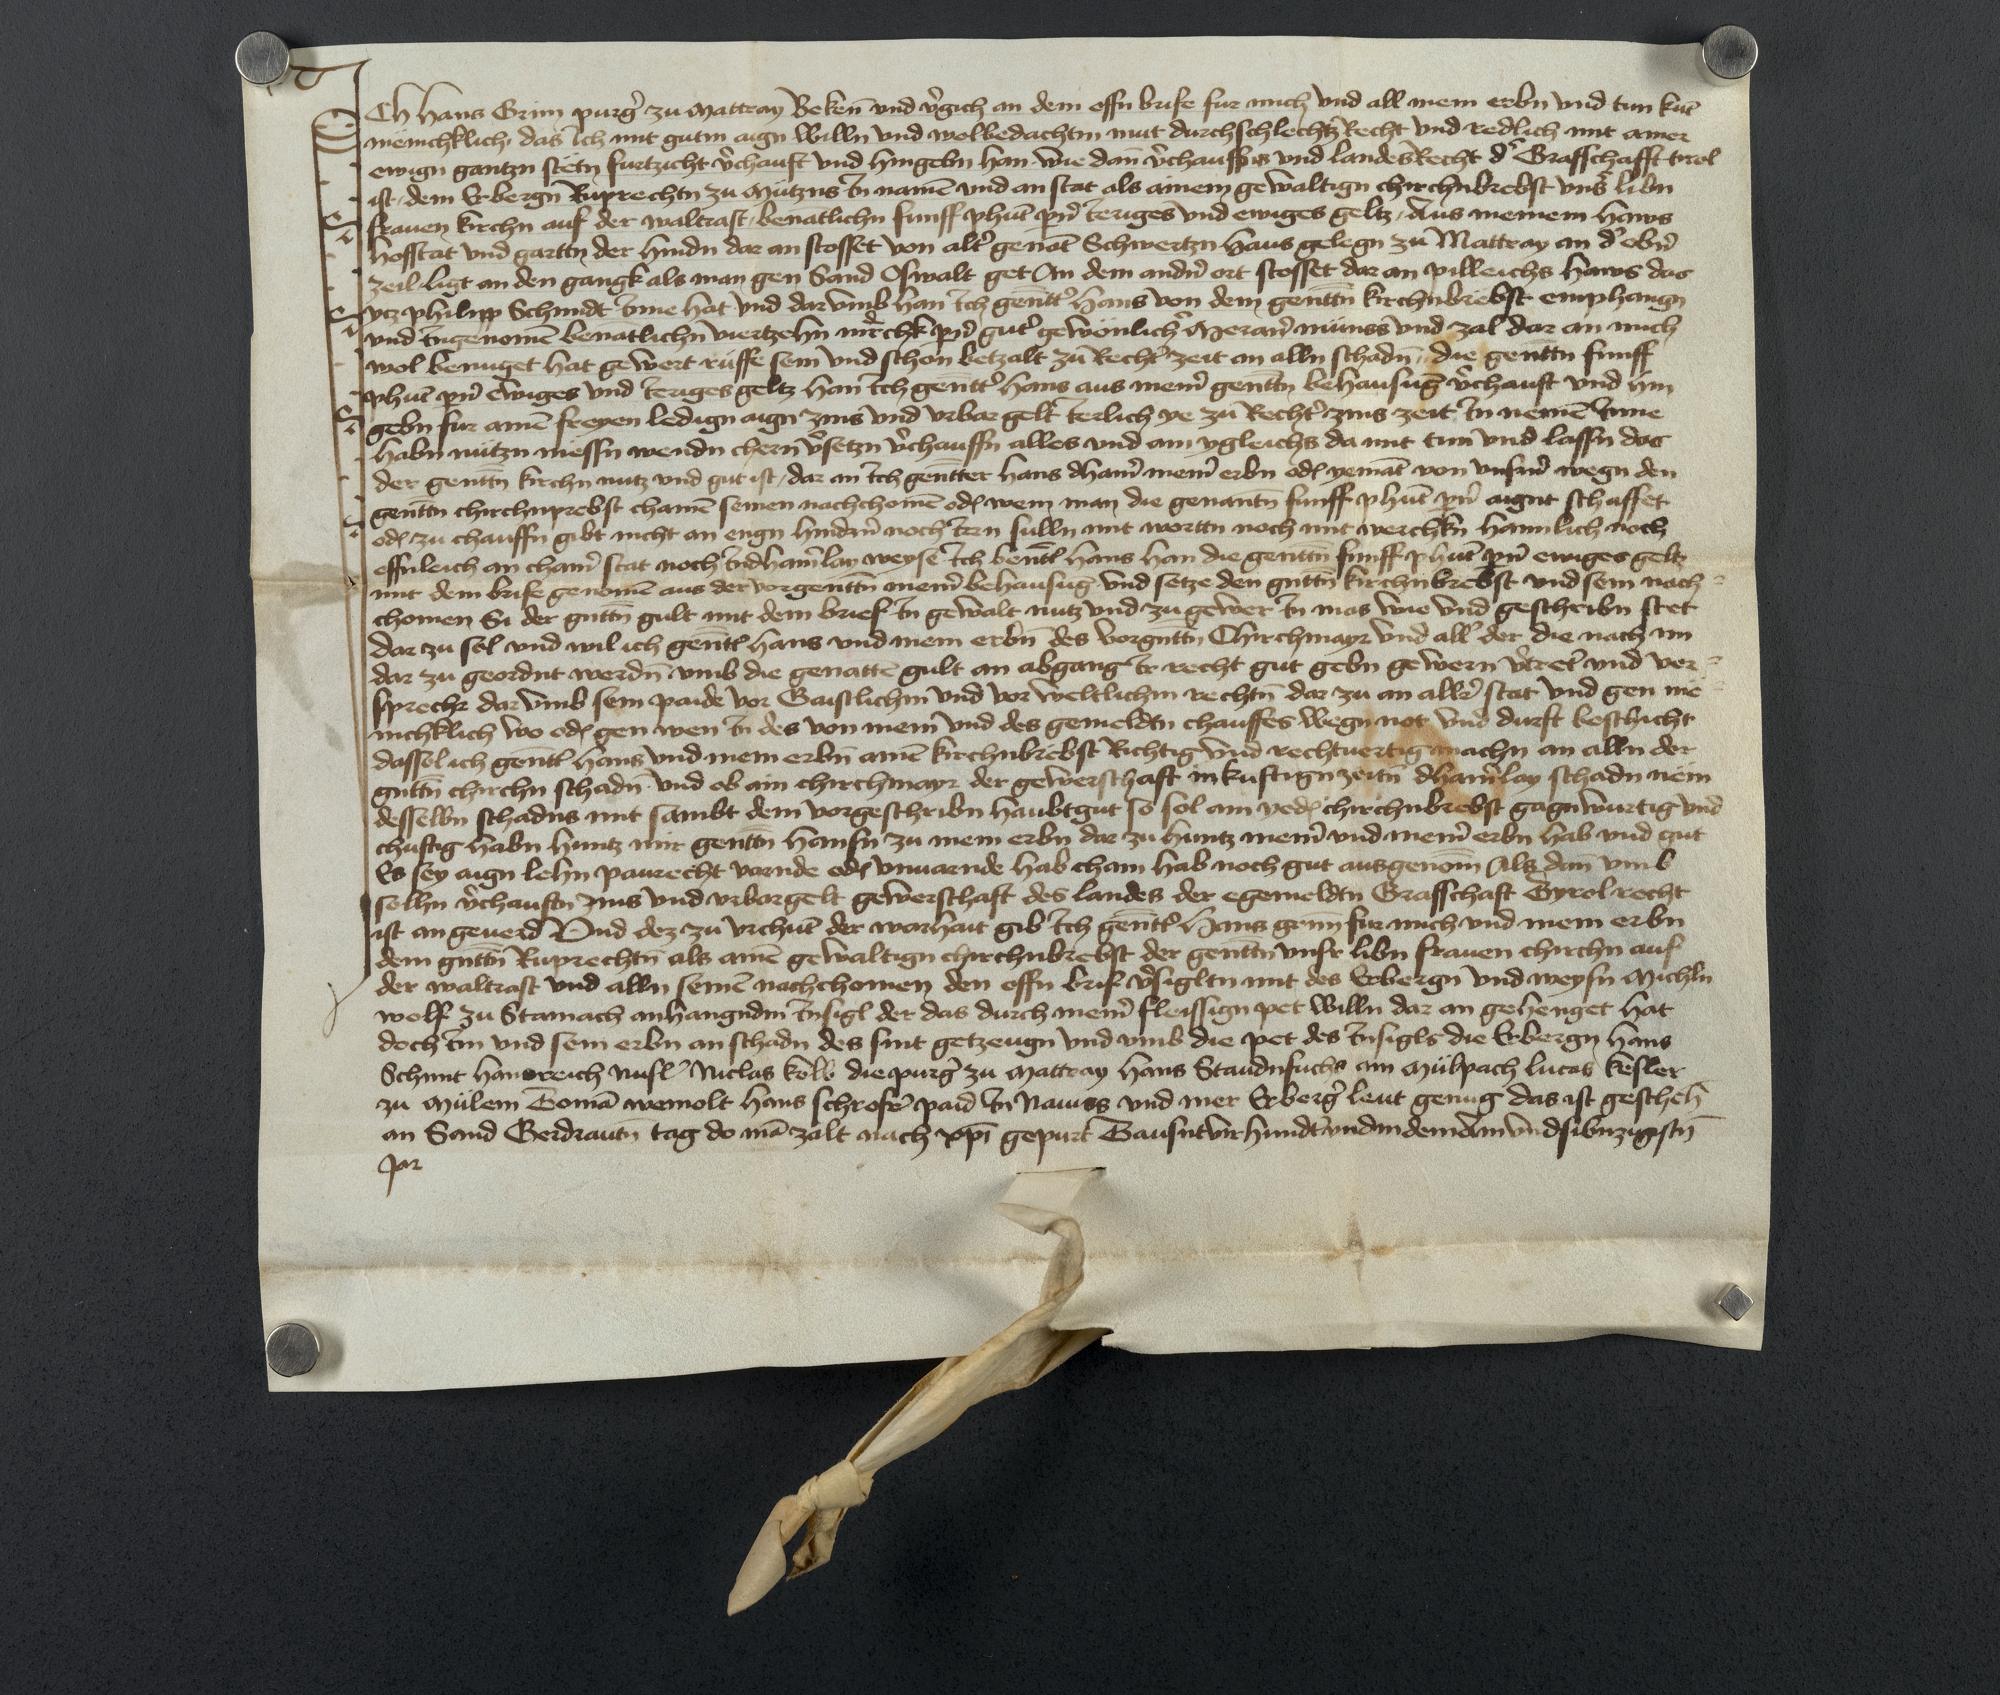 Ich Hans Grim purg̉ zu Mattray Bekeñ vnd v̉gich an dem offn brife fur mich vnd all mein erbn vnd tun kūt
meinchklich, das Ich mit gutm aign Willn vnd wolbedachtm mut durchschlechtz Recht vnd redlich mit ainer
ewign gantzn stëtn furtzicht v̉chauft vnd hingebn han wie dañ v̉chauffns vnd landes Recht d̉ Graffschafft tirol
ist, dem Erbergn Ruprechtn zu Mützns In namē vnd an stat als ainem gewaltign chirchnbrebst vnsr̉ libn
frauen kirchn auf der waltrast, benātlichn funff phūt pn̄ Ieriges vnd ewiges geltz, Aus meinem haws
hofstat vnd gartn der hindn dar an stosset von alt̉ genāt Schwertzn haus gelegn zu Mattray an d̉ obn̉
zeil, ligt an den gangk als man gen Sand Oswalt get An dem andn̉ ort stosset dar an pilleichs haws das
ytz philipp Schmidt Inne hat vnd dar vmb han Ich gentt̉ Hans von dem genttn̄ kirchnbrebst emphangn
vnd Ingenomē benatlichn viertzehn mr̉chk pn̄ gut̉ gewönlich̉ Meran̉ münss vnd zal dar an mich
wol benuget hat gewert rüffe sein vnd schon betzalt zu Recht̉ zeit an alln schadn̄, die genttn̄ funff
phūt pn̄ ewiges vnd Ieriges geltz han Ich gentt̉ hans aus mein̉ genttn̄ behausūg v̉chauft vnd hin
gebn fur ainē freyen ledign aign zins vnd vrbar gelt Ierlich ye zu Recht̉ zins zeit In nemē Inne
habn nützn niessn wendn chern̄ v̉setzn v̉chauffn alles vnd ain ygleichs da mit tun vnd lassn das
der genttn̄ kirchn nutz vnd gut ist, dar an Ich gentter hans dhain̉ mein̉ erbn od̉ yemāt von vnsrn̉ wegn den
genttn̄ chirchnprebst chainē seinen nachchomē od̉ wem man die genantn̄ funff phūt pn̄ aignt schaffet
od̉ zu chauffn gibt nicht an engn hindrn̉ noch Iren sulln mit wortn noch mit werchkn haimlich noch
offnleich an chain̉ stat noch Indhain̉lay weyse Ich bentt̉ hans han die genttn̄ funff phūt pn̄ ewiges geltz
mit dem brife genomē aus der vorgenttn̄ mein̉ behausūg vnd setze den gnttn̄ kirchnbrebst vnd sein nach
chomen Si der gnttn̄ gult mit dem brief In gewalt nutz vnd zu gewer In mas wie vnd geschribn stet
dar zu sol vnd wil ich gentt̉ hans vnd mein erbn̄ des vorgnttn̄ Chirchmayr vnd all̉ der die nach im
dar zu geordnt werdn̄ vmb die genattē gult an abgang Ir recht gut gebn gewern v̉tret̉ vnd ver
sprech̉ dar vmb sein paide vor Gaistlichm vnd vor weltlichm rechtn̄ dar zu an all̉r stat vnd gen mē
nichklich wo od̉ gen wen In des von mein̉ vnd des gemeldtn chauffes wegn not vnd durft beschicht
das sol ich gentt̉ hans vnd mein erbn̄ ainē kirchnbrebst Richtig vnd rechtuertig machn an alln der
gnttn̄ chirchn schadn̄ vnd ob ain chirchmayr der gewerschaft in kuftign zeitn̄ dhain̉lay schadn nëm
desselbn schadns mit sambt dem vorgeschribn haubtgut so sol ain yed̉ chirchnbrebst gagnwurtig vnd
chuftig habn hintz mir genttn̄ hansn zu mein erbn dar zu hintz mein̉ vnd mein̉ erbn hab vnd gut
Es sey aign lehn paurecht varnde od̉ vnuarnde hab chain hab noch gut ausgenom̄ Als dañ vmb
solhn v̉chauftn zins vnd vrbargelt gewerschaft des landes der egemeldtn Graffschaft Tyrol recht
ist an geuerd Vnd dez zu vrchūt der warhait gib Ich gentt̉ Hans grim̄ fur mich vnd mein erbn
dem gnttn̄ Ruprechtn̄ als ainē gewaltign chirchnbrebst der genttn̄ vnsr̉ libn frauen chirchn auf
der waltrast vnd alln seinē nachchomen den offn brif v̉sigltn mit des Erbergn vnd weysn Michln
wolf zu Stainach anhangndm Insigl der das durch mein̉ fleissign pet willn dar an gehenget hat
doch Im vnd sein erbn an schadn des sint getzeugn vnd vmb die pet des Insigls die Erbergn hans
Schmit hanreich nusl̉ Niclas kolb die purg̉ zu Mattray hans Staudnfuchs am Mülpach lucas kesler
zu Mülein Tomā wenolt hans schrofer̉ paid In Nauiss vnd mer Erberg̉ leut genug das ist geschēh
an Sand Gerdrautn̄ tag do mā zalt nach xp̄i gepurt Tausntvirhundt̉ vnd in dem Ain vndsibnzigstn̄
Jar